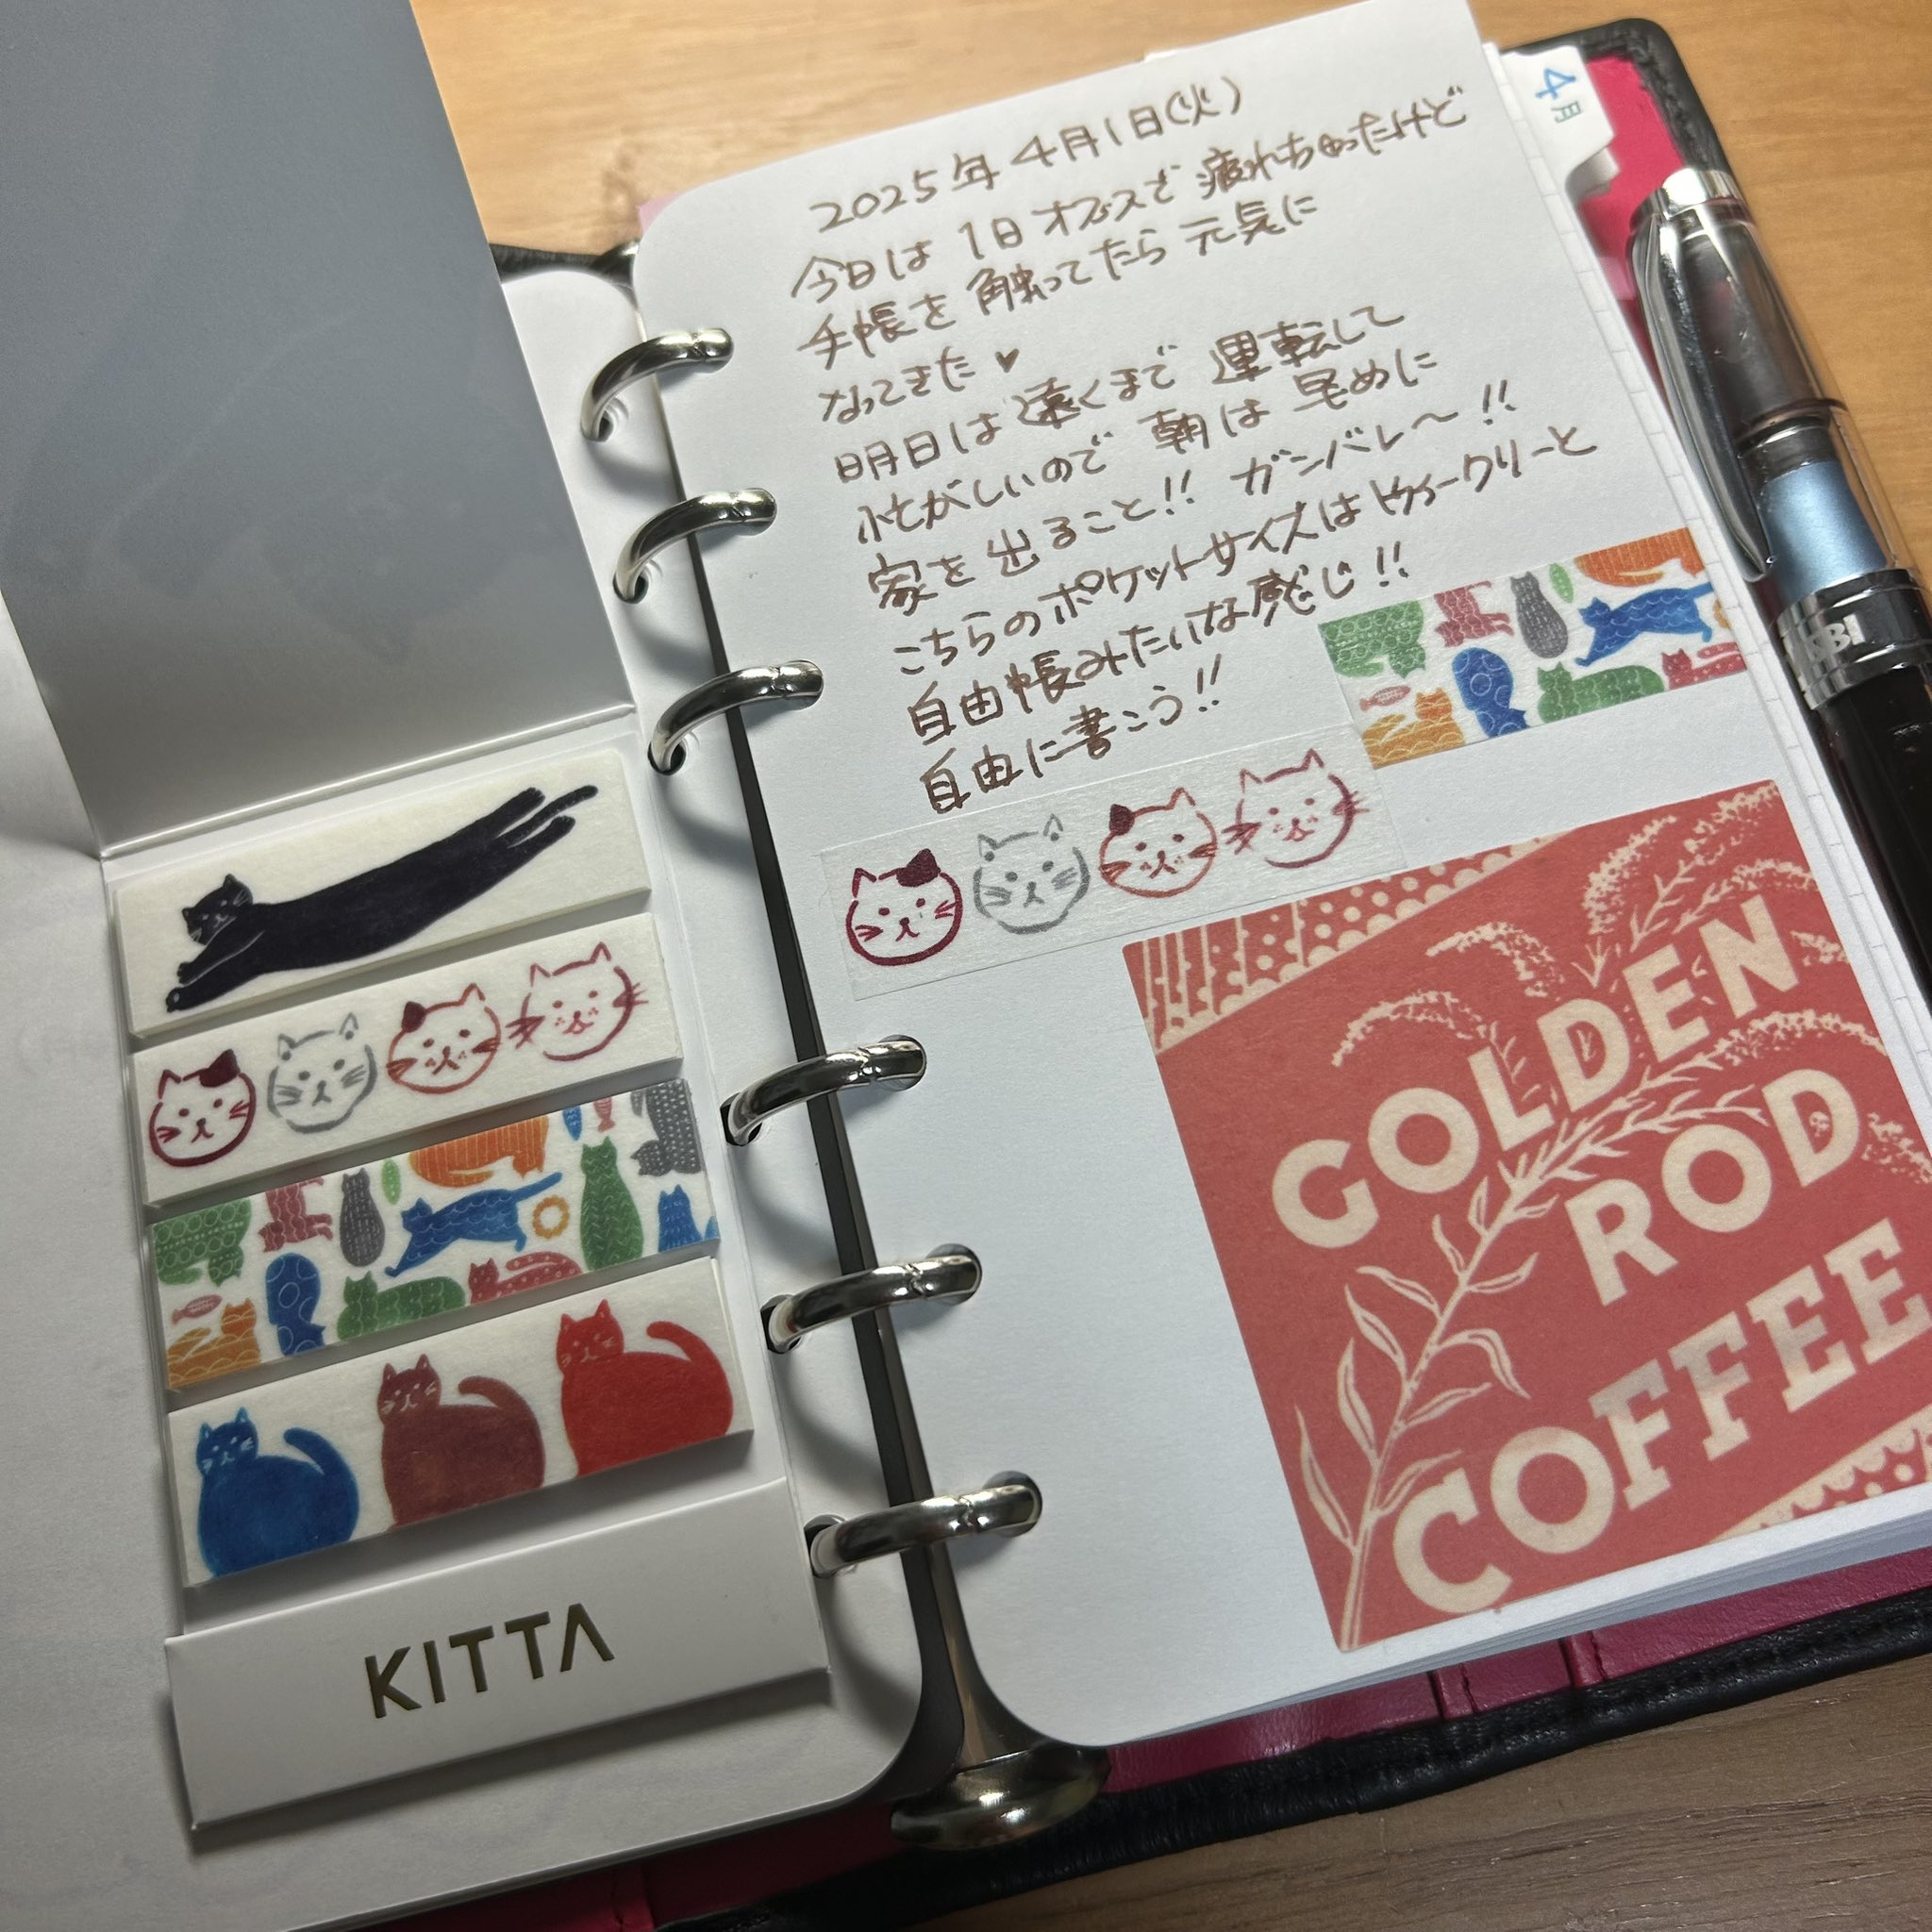 4月
2025年4月1日(火)
今日は1日オフィスで疲れちゃったけど
手帳を触ってたら元気に
なってきた♥
明日は遠くまで運転して
忙がしいので朝は早めに
家を出ること!! ガンバレ〜!!
こちらのポケットサイズはウィークリーと
自由帳みたいな感じ!!
自由に書こう!!
GOLDEN
ROD
COFFEE
KITTA